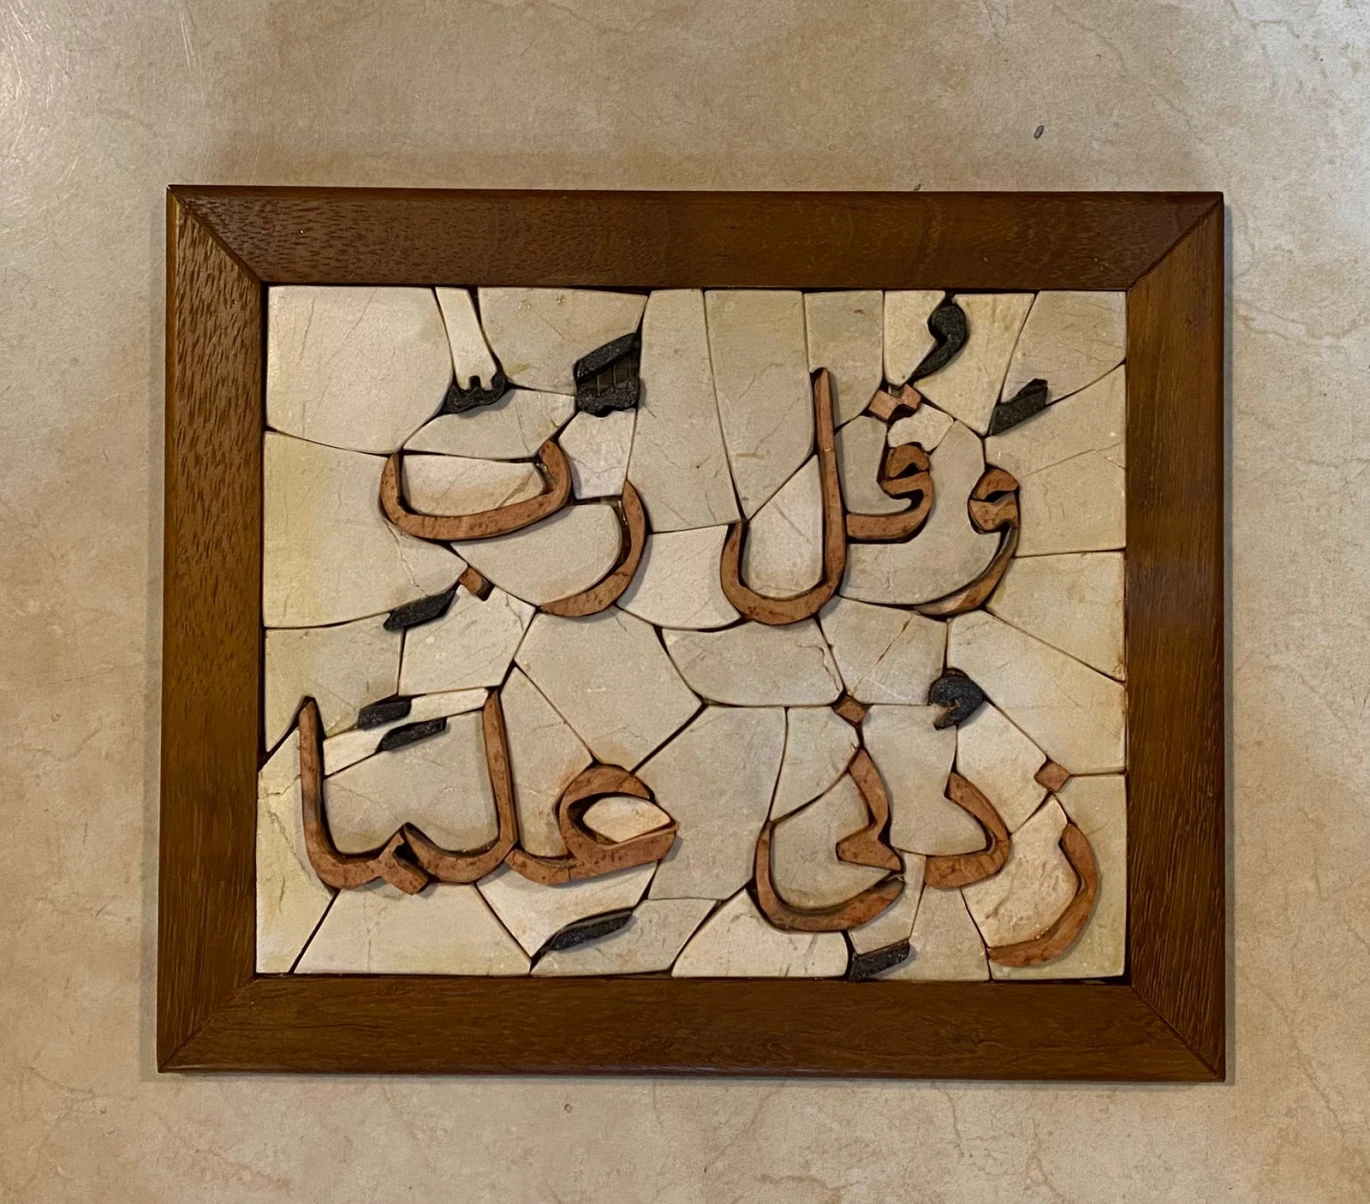 وَقُل رَّبِّ
زِدْنِي عِلْمًا